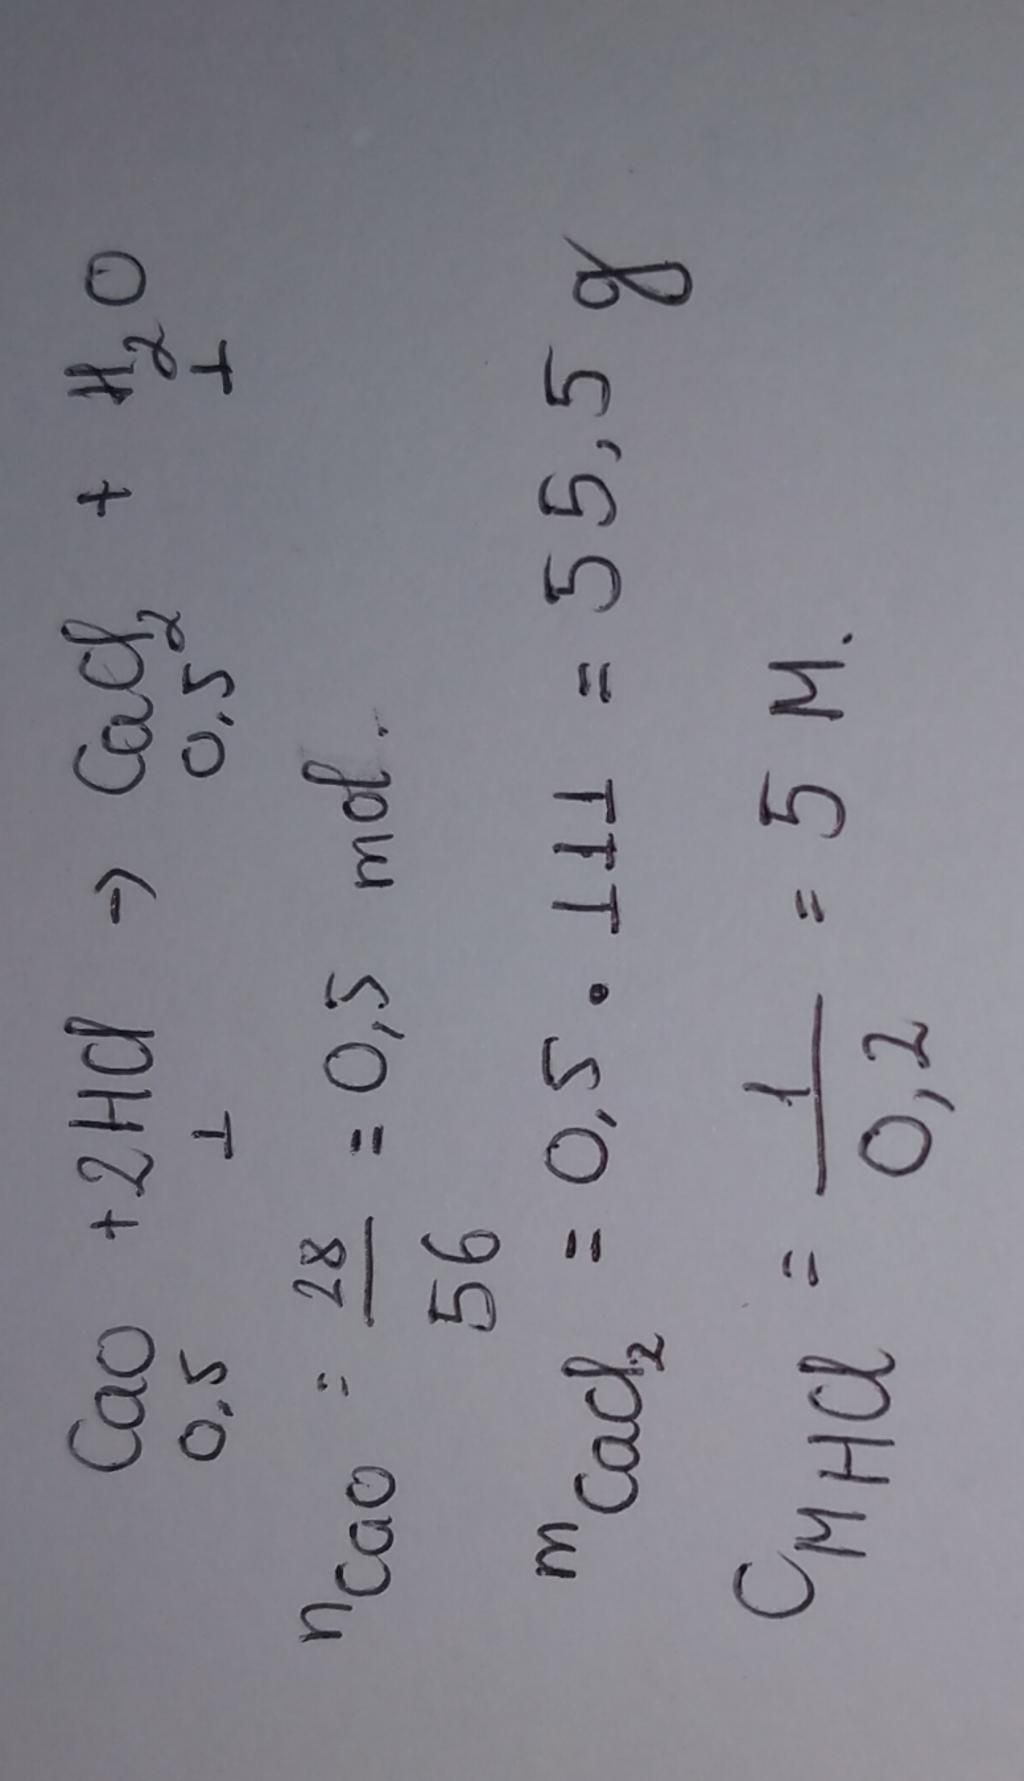 CaO + 2HCl → CaCl₂ + H₂O
0,5 1 0,5 1
nCaO = 28/56 = 0,5 mol.
mCaCl₂ = 0,5 . 111 = 55,5 g
CM HCl = 1/0,2 = 5 M.